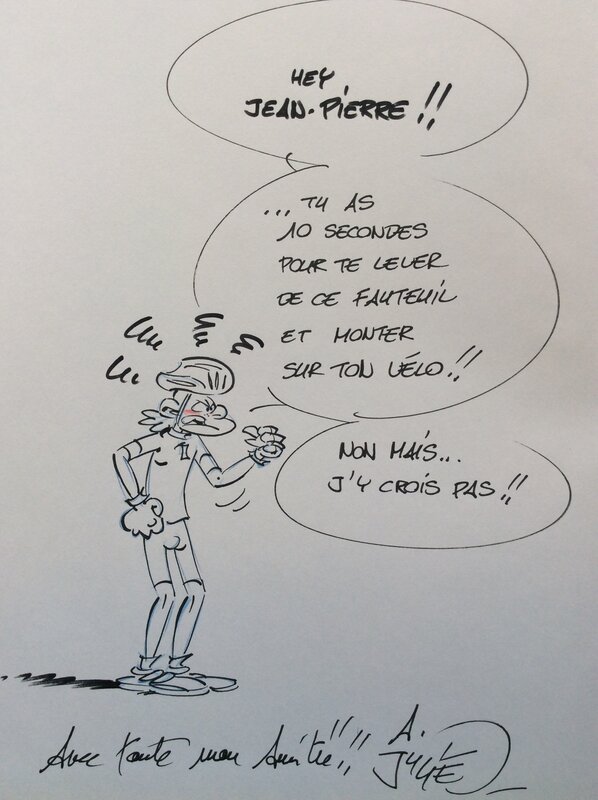 HEY
JEAN-PIERRE!!
...TU AS
10 SECONDES
POUR TE LEVER
DE CE FAUTEUIL
ET MONTER
SUR TON VÉLO!!
NON MAIS...
J'Y CROIS PAS!!
Avec toute mon Amitié!!!!
A.
JULIÉ